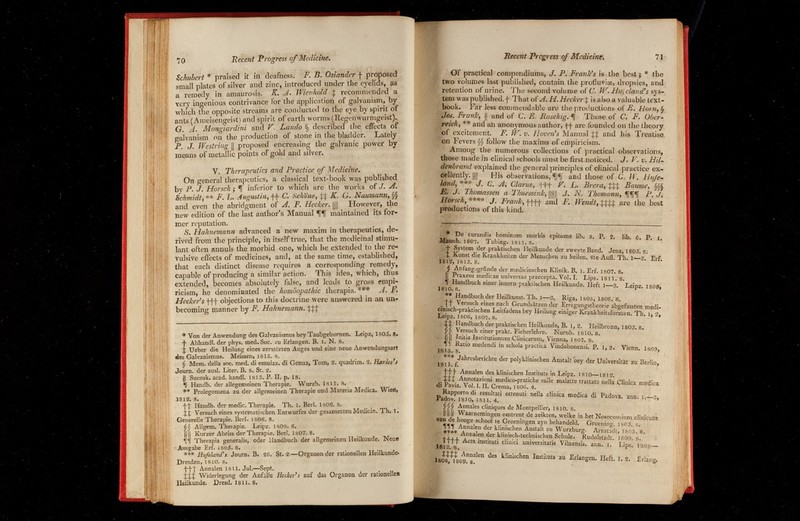 70 Recent Progress of Medicine.
Schubert * praised it in deafness. F. B. Osiander † proposed
small plates of silver and zinc, introduced under the eyelids, as
a remedy in amaurosis. K. A. Wienhold ‡ recommended a
very ingenious contrivance for the application of galvanism, by
which the opposite streams are conducted to the eye by spirit of
ants (Ameisengeist) and spirit of earth worms (Regenwurmgeist).
G. A. Mongiardini and V. Lando § described the effects of
galvanism on the production of stone in the bladder. Lately
P. J. Westring || proposed encreasing the galvanic power by
means of metallic points of gold and silver.
V. Therapeutics and Practice of Medicine.
On general therapeutics, a classical text-book was published
by P. J. Horsch; ¶ inferior to which are the works of J. A.
Schmidt, ** F. L. Augustin, †† C. Schöne, ‡‡ K. G. Naumann, §§
and even the abridgment of A. F. Hecker. |||| However, the
new edition of the last author's Manual ¶¶ maintained its for-
mer reputation.
S. Hahnemann advanced a new maxim in therapeutics, de-
rived from the principle, in itself true, that the medicinal stimu-
lant often annuls the morbid one, which be extended to the re-
vulsive effects of medicines, and, at the same time, established,
that each distinct disease requires a corresponding remedy,
capable of producing a similar action. This idea, which, thus
extended, becomes absolutely false, and leads to gross empi-
ricism, he denominated the homöopathic therapia. *** A. F.
Hecker's ††† objections to this doctrine were answered in an un-
becoming manner by F. Hahnemann. ‡‡‡
* Von der Anwendung des Galvanismus bey Taubgebornen. Leipz, 1805. 8.
† Abhandl. der phys. med. Soc. zu Erlangen. B. 1. N. 8.
‡ Ueber die Heilung eines zerstörten Auges und eine neue Anwendungsart
des Galvanismus. Meissen, 1813. 8.
§ Mem. della soc. med. di emulaz. di Genua, Tom, 2. quadrim. 2. Harles's
Journ. der ausl. Liter. B. 8. St. 2.
|| Svensk. acad. handl. 1813. P. II. p. 18.
¶ Handb. der allgemeinen Therapie. Wurzb. 1811. 8.
** Prolegomena zu der allgemeinen Therapie und Materia Medica. Wien,
1812. 8.
†† Handb. der medic. Therapie. Th. 1. Berl. 1806. 8.
‡‡ Versuch eines systematischen Entwurfes der gesammten Medicin. Th. 1.
Generelle Therapie. Berl. 1806. 8.
§§ Allgem. Therapie. Leipz. 1808. 8.
|||| Kurzer Abriss der Therapie. Berl. 1807. 8.
¶¶ Therapia generalis, oder Handbuch der allgemeinen Heilkunde. Neue
Ausgabe Erf. 1805. 8.
*** Hufeland's Journ. B. 26. St. 2.—Organon der rationellen Heilkunde.
Dresden, 1810. 8.
††† Annalen 1811. Jul.—Sept.
‡‡‡ Widerlegung der Anfälle Hecker's auf das Organon der rationellen
Heilkunde. Dresd. 1811. 8.
Recent Progress of Medicine. 71
Of practical compendiums, J. P. Frank's is the best; * the
two volumes last published, contain the profluviæ, dropsies, and
retention of urine. The second volume of C. W. Hufeland's sys-
tem was published. † That of A. H. Hecker ‡ is also a valuable text-
book. Far less commendable are the productions of E. Horn, §
Jos. Frank, || and of C. E. Raschig. ¶ Those of C. F. Ober-
reich, ** and an anonymous author, †† are founded on the theory
of excitement. F. W. v. Hoven's Manual ‡‡ and his Treatise
on Fevers §§ follow the maxims of empiricism.
Among the numerous collections of practical observations,
those made in clinical schools must be first noticed. J. V. v. Hil-
denbrand explained the general principles of clinical practice ex-
cellently. |||| His observations, ¶¶ and those of C. W. Hufe-
land, *** J. C. A. Clarus, ††† F. L. Brera, ‡‡‡ Baume, §§§
E. J. Thomassen a Thuessink, |||||| A. N. Thomann, ¶¶¶ P. J.
Horsch, **** J. Frank, †††† and F. Wendt, ‡‡‡‡ are the best
productions of this kind.
* De curandis hominum morbis epitome lib. 5. P. 2. lib. 6. P. 1.
Mansch. 1807. Tubing. 1811. 8.
† System der praktischen Heilkunde der zweyte Band. Jena, 1805. 8.
‡ Kunst die Krankheiten der Menschen zu heilen. 2te Aufl. Th. 1—2. Erf.
1812, 1813. 8.
§ Anfangsgründe der medicinischen Klinik. B. 1. Erf. 1807. 8.
|| Praxeos medicae universae praecepta. Vol. I. Lips. 1811. 8.
¶ Handbuch einer innern praktischen Heilkunde. Heft 1—3. Leipz. 1808,
1810. 8.
** Handbuch der Heilkunst. Th. 1—2, Riga, 1805, 1808. 8.
†† Versuch eines nach Grundsätzen der Erregungstheorie abgefassten medi-
cinisch-praktischen Leitfadens bey Heilung einiger Krankheitsformen. Th. 1, 2,
Leipz. 1806, 1807. 8.
‡‡ Handbuch der praktischen Heilkunde, B. 1, 2. Heilbronn, 1805. 8.
§§ Versuch einer prakt. Fieberlehre. Nurnb. 1810. 8.
|||| Initia Institutionum Clinicarum, Vienna, 1807. 8.
¶¶ Ratio medendi in schola practica Vindobonensi. P. 1, 2. Vienn. 1809,
1813. 8.
*** Jahresberichte der polyklinischen Anstalt bey der Universität zu Berlin,
1811. f.
††† Annalen des klinischen Instituts in Leipz. 1810—1812.
‡‡‡ Annotazioni medico-pratiche sulle malattie trattate nella Clinica medica
di Pavia. Vol. I. II. Crema, 1806. 4.
Rapporto di resultati ottenuti nella clinica medica di Padova. ann. 1.—3,
Padov. 1810, 1811. 4.
§§§ Annales cliniques de Montpellier, 1810. 8.
|||||| Waarnemingen omtrent de ziekten, welke in het Nosocomium clinicum
van de hooge school te Groeningen syn behandeld. Groening. 1805. 8.
¶¶¶ Annalen der klinischen Anstalt zu Wurzburg. Arnstadt, 1805. 8.
**** Annalen der klinisch-technischen Schule. Rudolstadt. 1809. 8.
†††† Acta instituti clinici universitatis Vilnensis. ann. 1. Lips. 1808—
1812. 8.
‡‡‡‡ Annalen des klinischen Instituts zu Erlangen. Heft. 1, 2. Erlang.
1808, 1809. 8.